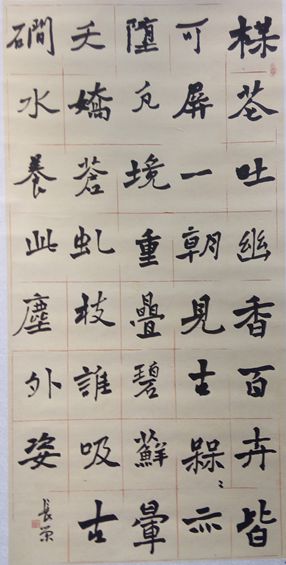 楳花吐幽香百卉皆
可屏一朝見古槑々亦
堕凡境重疊碧蘚暈
夭嬌蒼虬枝誰吸古
磵水養此塵外姿
長荣